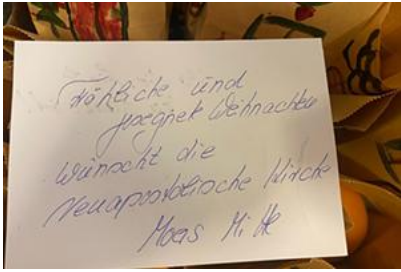 Fröhliche und
gesegnete Weihnachten
wünscht die
Neuapostolische Kirche
Moers Mitte